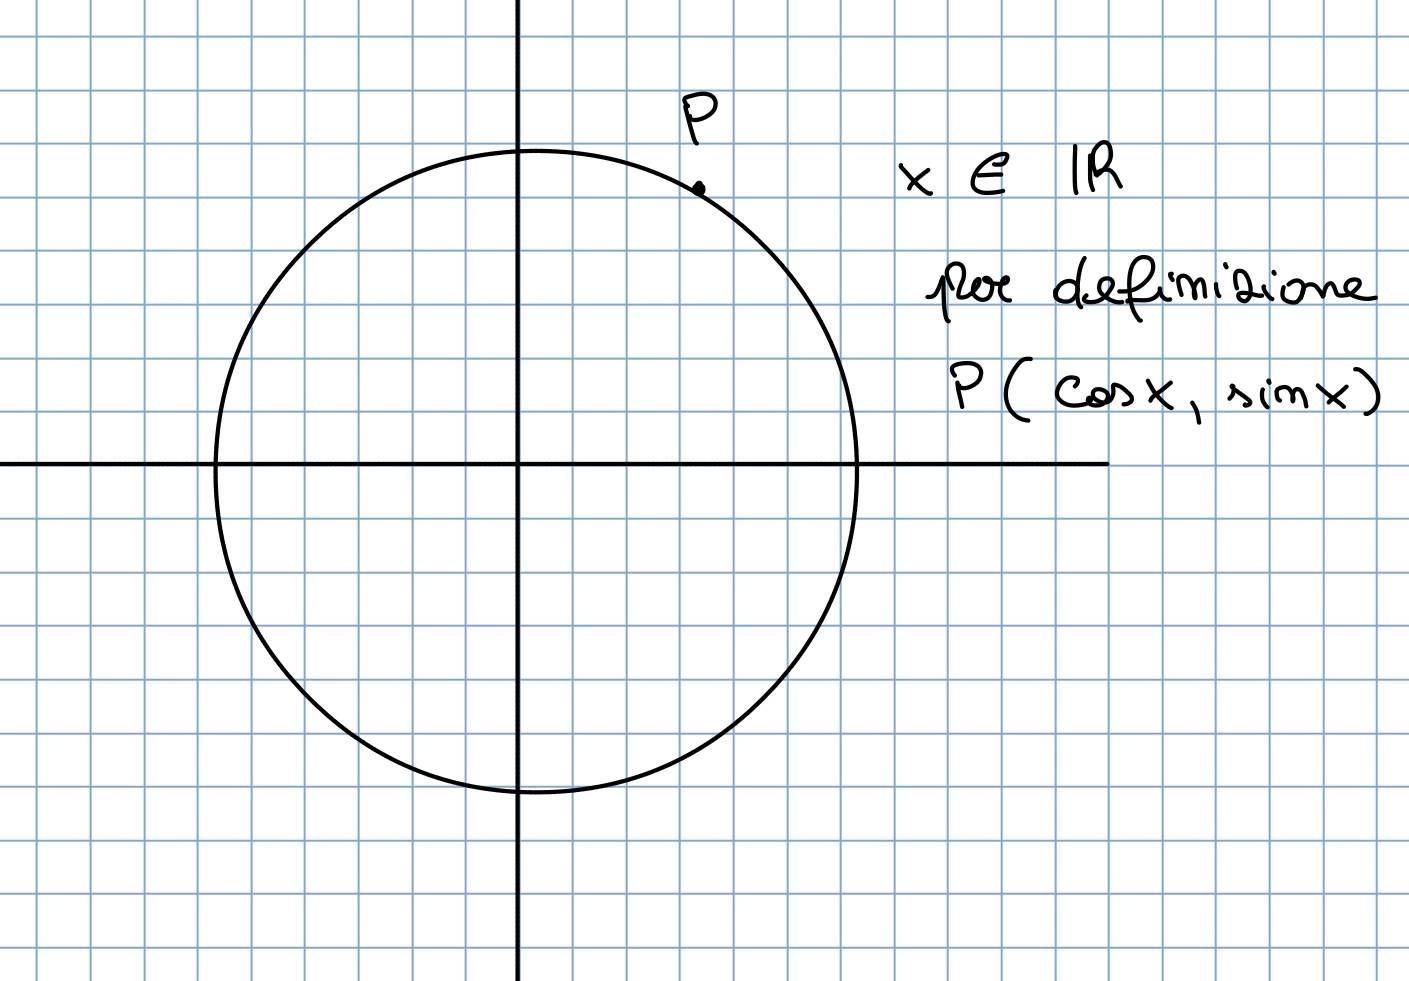 P
x ∈ ℝ
per definizione
P( cosx, sinx)